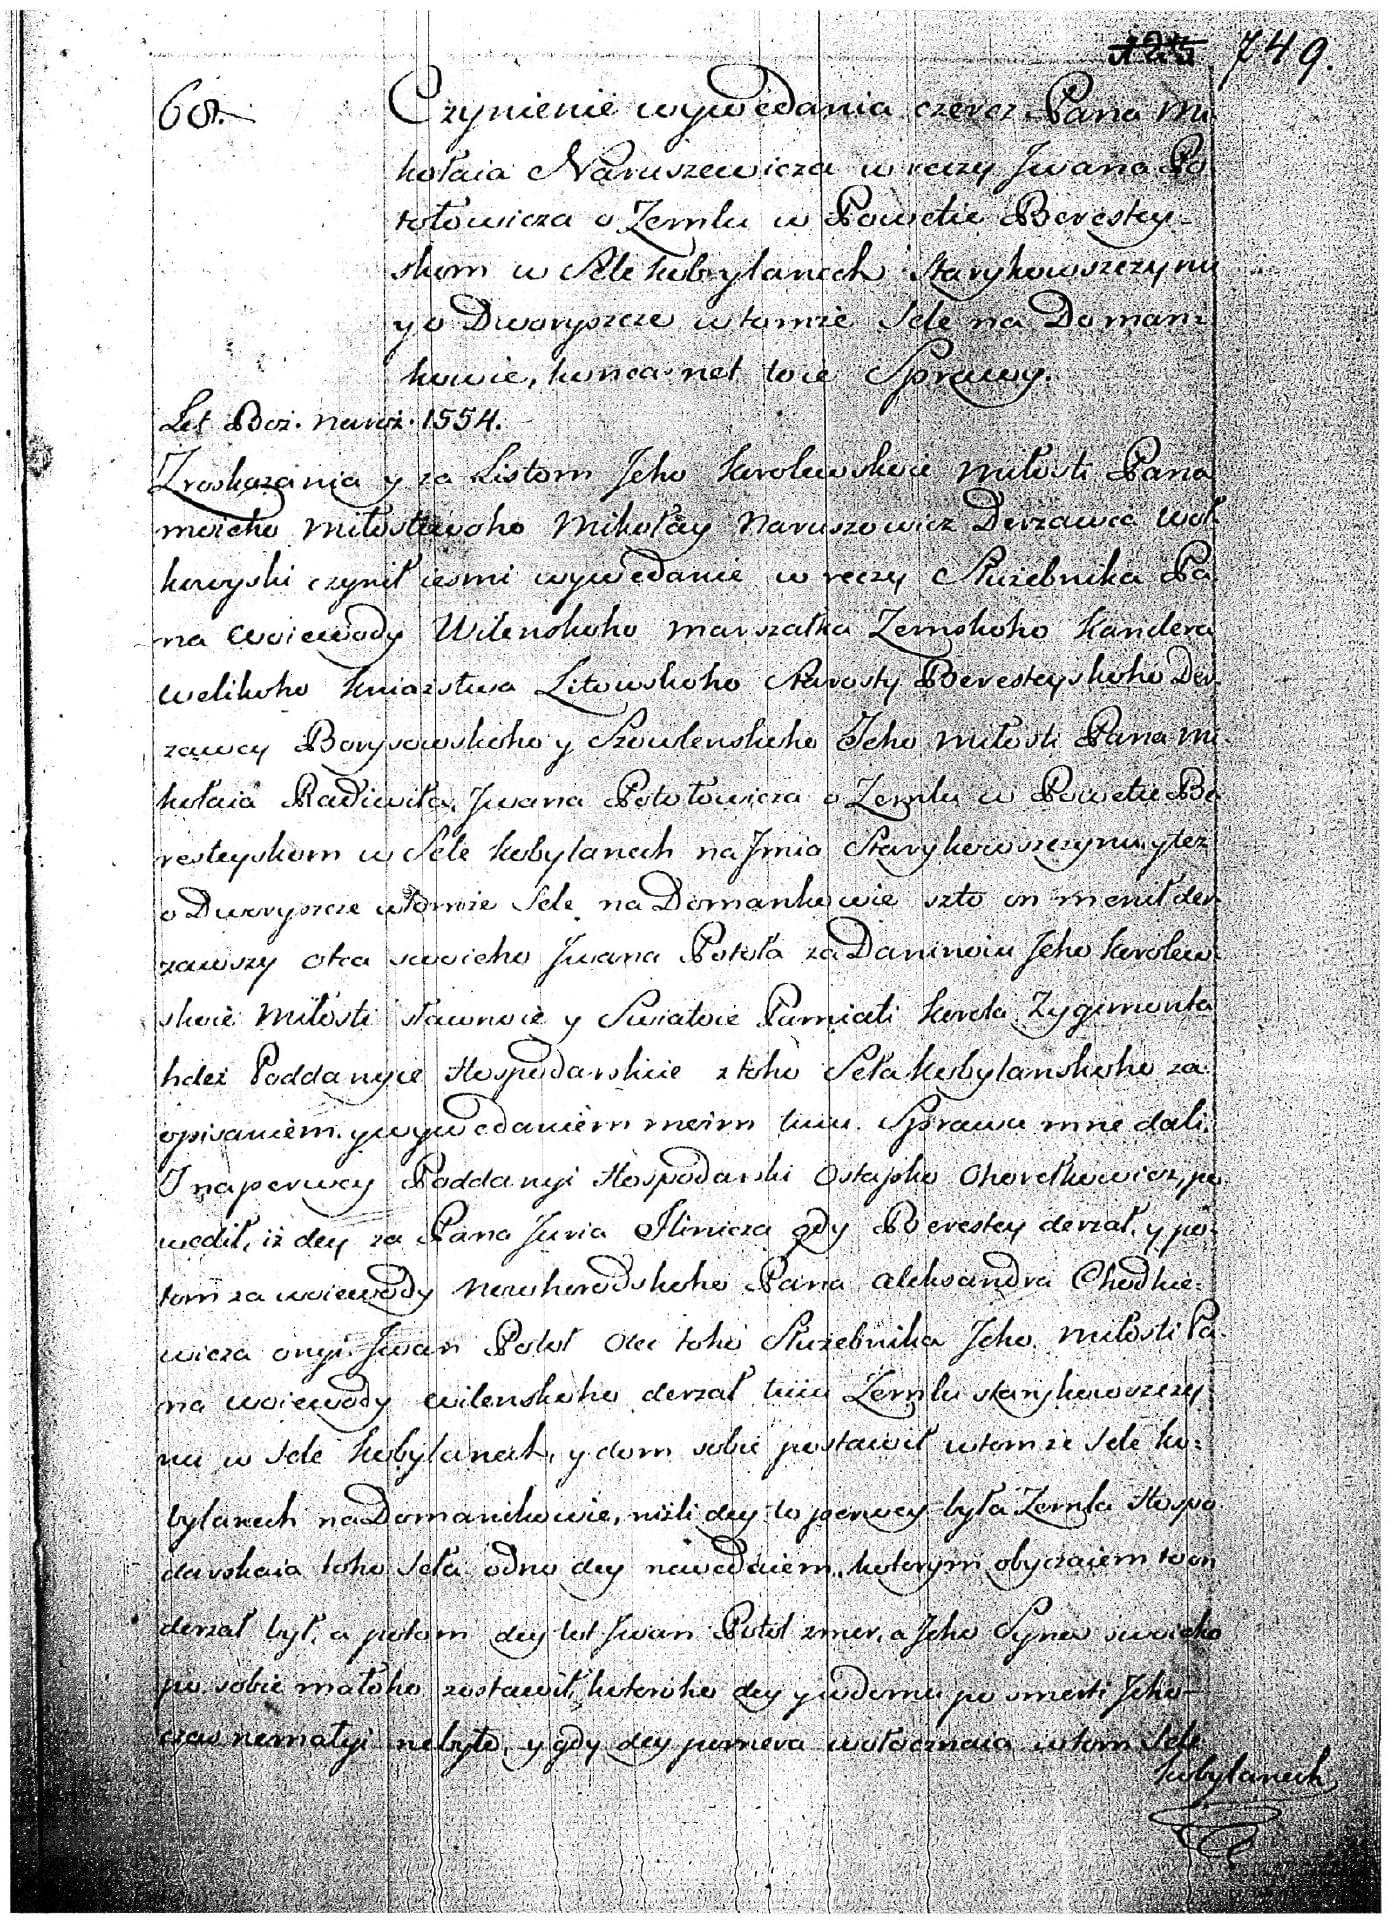 125 749.
68. Czynienie wywedania czerez Pana Mi
kołaia Naruszewicza w reczy Jwana Po
tołowicza o Zemlu w Powetie Berestey-
skom w Sele Kobylanech Starykowszczynu
y o Dworyszcze w tomże Sele na Doman:
kowie, konca net toie Sprawy.
Let Boż. naroż. 1554.
Z roskazania y za Listom Jeho Korolewskoie Miłosti Pana
moieho Miłostiwoho Mikołay Naruszowicz Derzawca Woł
kowyski czynił iesmi wywedanie w reczy Służebnika Pa
na Woiewody Wilenskoho Marszałka Zemskoho Kanclera
welikoho Kniazstwa Litowskoho Starosty Beresteyskoho Der
zawcy Borysowskoho y Szowlenskoho Jeho Miłosti Pana Mi
kołaia Radiwiła, Jwana Potołowicza o Zemlu w Powetie Be
resteyskom w Sele Kobylanech na Jmia Starykowszczynu y też
o Dworyszcze w tomże Sele na Domankowie szto on menił der
zawszy otca swoieho Jwana Potoła za Daninoiu Jeho Korolew
skoie Miłosti sławnoie y Swiatoie Pamiati Korola Zygimonta
hdeż Poddanyie Hospodarskie z toho Seła Kobylanskoho za
opisaniem y wywedaniem moim tuiu Sprawu mne dali.
J naperwey Poddanyi Hospodarski Ostapko Chorełkowicz, po
wedił, iż dey za Pana Juria Jlinicza gdy Berestey derzał, y po-
tom za woiewody Nowhorodskoho Pana Aleksandra Chodkie:
wicza onyi Jwan Potoł otec toho Służebnika Jeho Miłosti Pa
na woiewody wilenskoho derzał tuiu Zemlu starykowszczy
nu w Sele Kobylanech, y dom sobie postawił w tom że Sele Ko:
bylanech na Domankowie, niżli dey to perwey była Zemla Hospo
darskaia toho Seła odno dey newedaiem, kotorym obyczaiem to on
derzał był, a potom dey tot Jwan Potoł zmer, a Jeho Syna swoieho
po sobie małoho zostawił, kotoroho dey y w domu po smerti Jeho-
czas nemałyi nebyło, y gdy dey pomera wołocznaia w tom Sele
Kobylanech